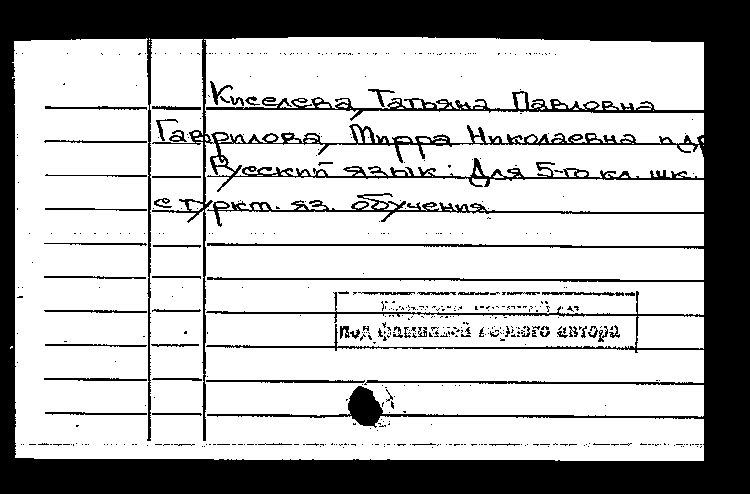 Киселева, Татьяна Павловна
Гаврилова, Мирра Николаевна и др
Русский язык: Для 5-го кл. шк.
с туркм. яз. обучения
под фамилией первого автора